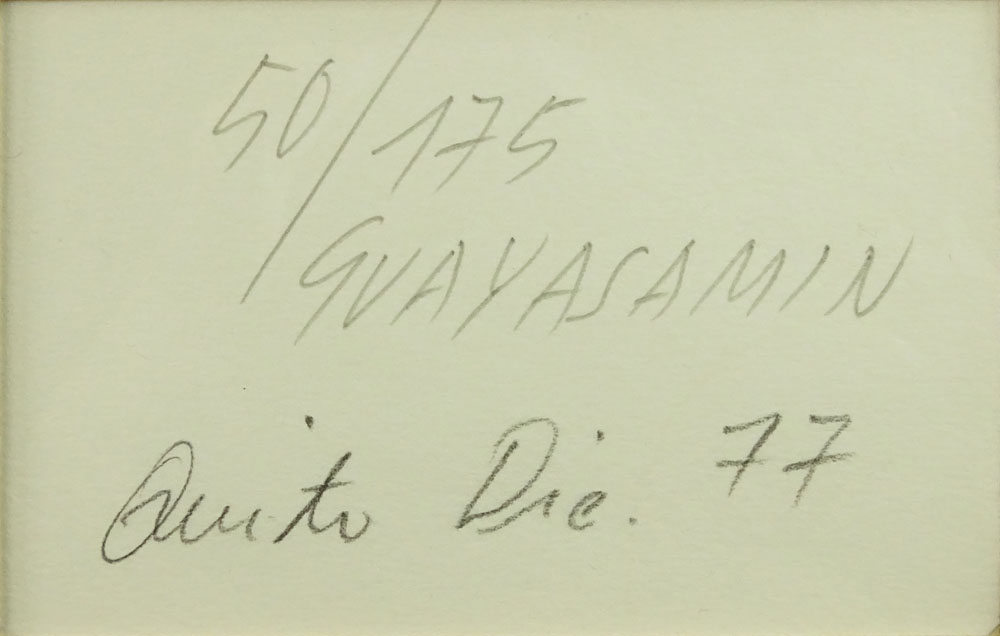 50/175
GUAYASAMIN
Quito Dic. 77